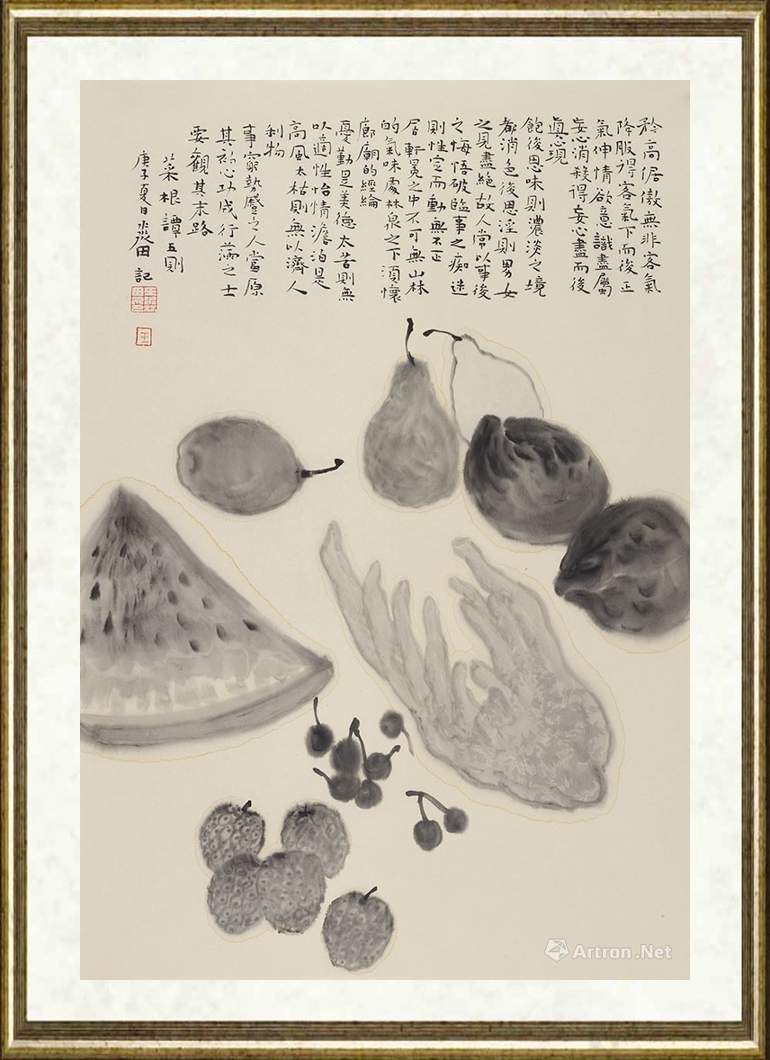 矜高倨傲無非客氣
降服得客氣下而後正
氣伸情欲意識盡屬
妄心消殺得妄心盡而後
真心現
飽後思味則濃淡之境
都消色後思淫則男女
之見盡絕故人常以事後
之悔悟破臨事之痴迷
則性定而動無不正
居軒冕之中不可無山林
的氣味處林泉之下須懷
廊廟的經綸
憂勤是美德太苦則無
以適性怡情澹泊是
高風太枯則無以濟人
利物
事窮勢蹙之人當原
其初心功成行滿之士
要觀其末路
菜根譚五則
庚子夏日淼田記
Artron.Net